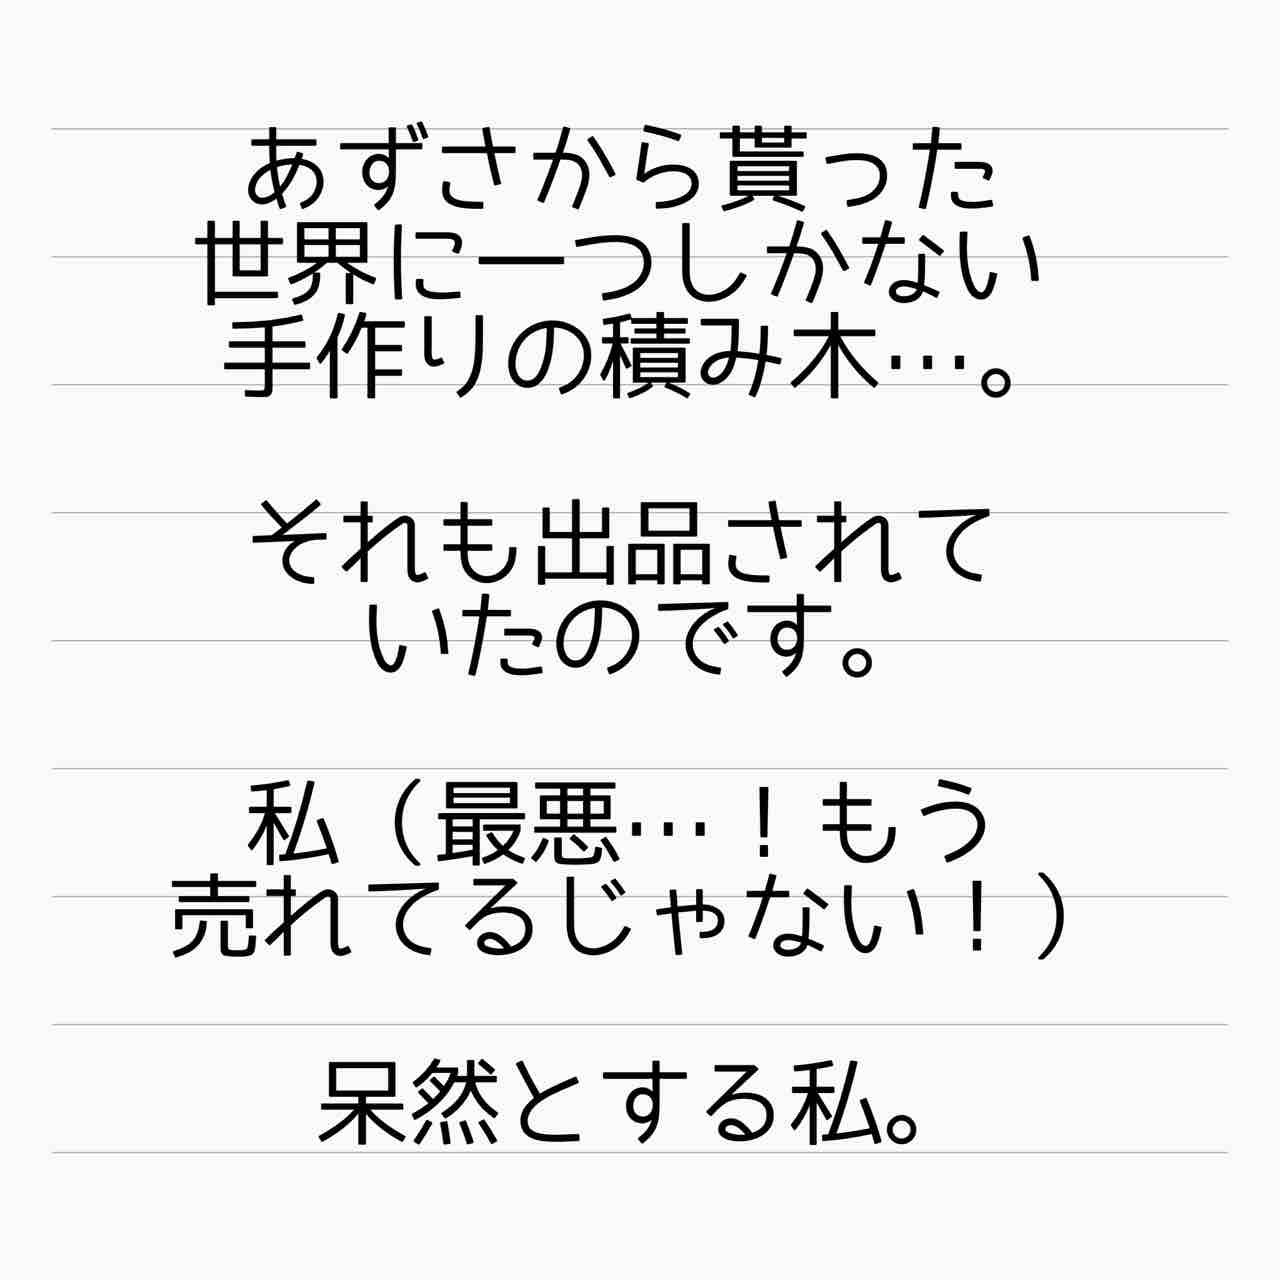 あずさから貰った
世界に一つしかない
手作りの積み木…。
それも出品されて
いたのです。
私（最悪…！もう
売れてるじゃない！）
呆然とする私。